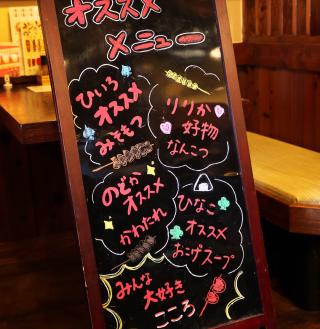 オススメ
メニュー
ひいろ
オススメ
みきもつ
りりか
好物
なんこつ
のどか
オススメ
かわたれ
ひなこ
オススメ
おこげスープ
みんな
大好き
こころ